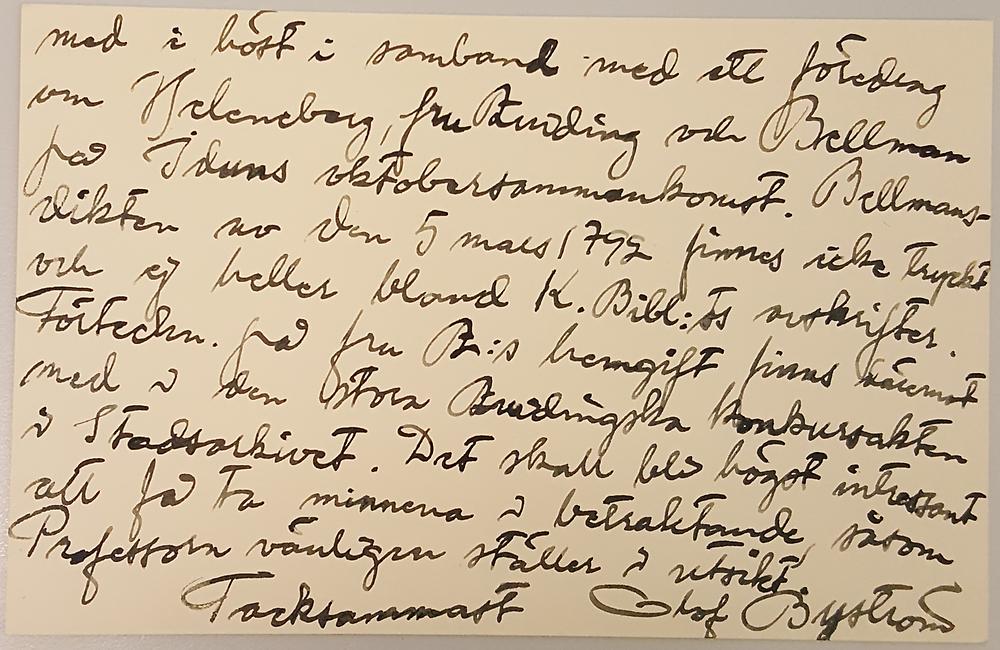 med i höst i samband med ett föredrag
om Heleneberg, fru Bruding och Bellman
på Iduns oktobersammankomst. Bellmans-
dikten av den 5 mars 1792 finnes icke tryckt
och ej heller bland K. Bibl:ts avskrifter.
Förteckn. på fru B:s hemgift finns
med i den stora konkursakten
i Stadsarkivet. Det skall bli högst intressant
att få ta minnena i betraktande, såsom
Professorn vänligen ställer i utsikt.
Tacksammast Olof Byström